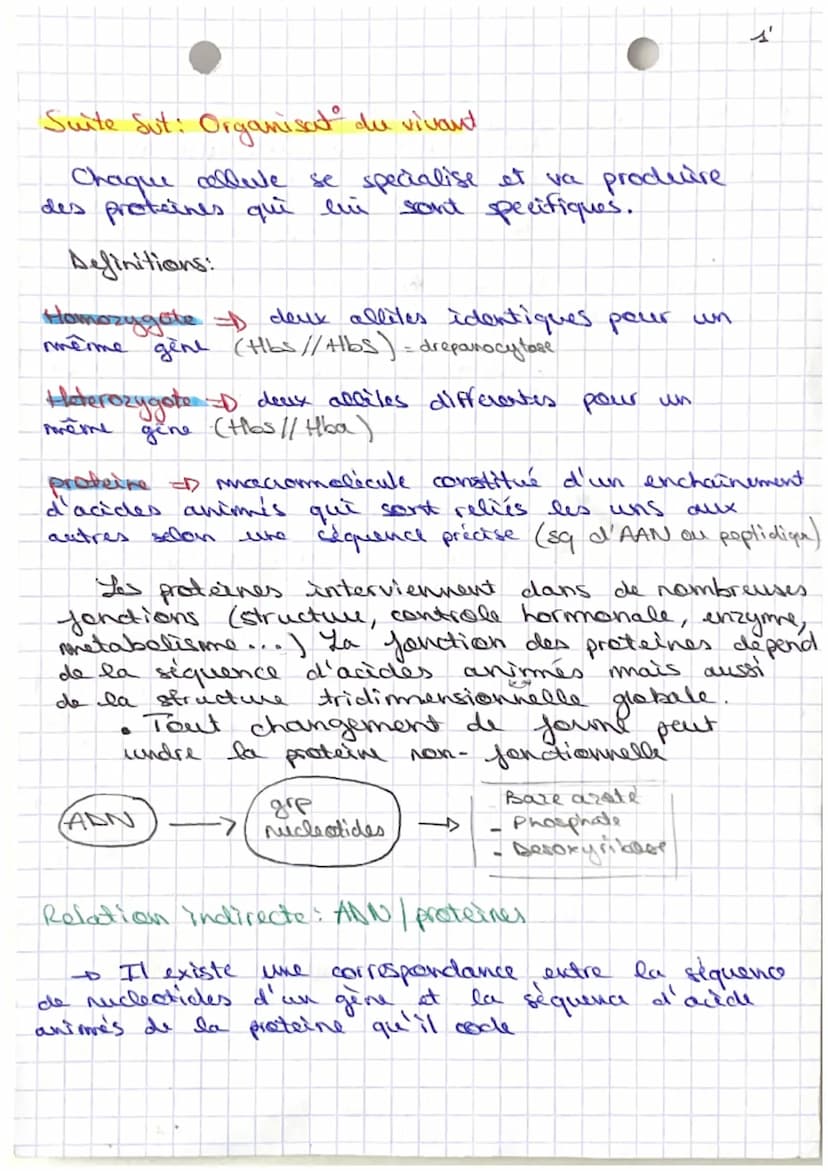 1'
Suite Svt: Organisat° du vivant
Chaque cellule se specialise et va produire
des proteines qui lui sont specifiques.
Definitions:
Homozygote => deux allèles identiques pour un
même gène (HbS//HbS) = drepanocytose
Heterozygote => deux allèles differentes pour un
même gène (Hbs//Hba)
proteine => macromolécule constitué d'un enchaînement
d'acides animés qui sont reliés les uns aux
autres selon une céquence précise (sq d'AAN ou peplidique)
Les proteines interviennent dans de nombreuses
fonctions (structure, controle hormonale, enzyme,
metabolisme...) La fonction des proteines dépend
de la séquence d'acides animés mais aussi
de la structure tridimensionnelle globale.
• Tout changement de forme peut
rendre la proteine non-fonctionnelle
ADN → grp nucleotides →
Base azoté
- Phosphate
- Desoxyribose
Relation indirecte: ADN/proteines
→ Il existe une correspondance entre la séquence
de nucleotides d'un gène et la séquence d'acide
animés de la proteine qu'il code